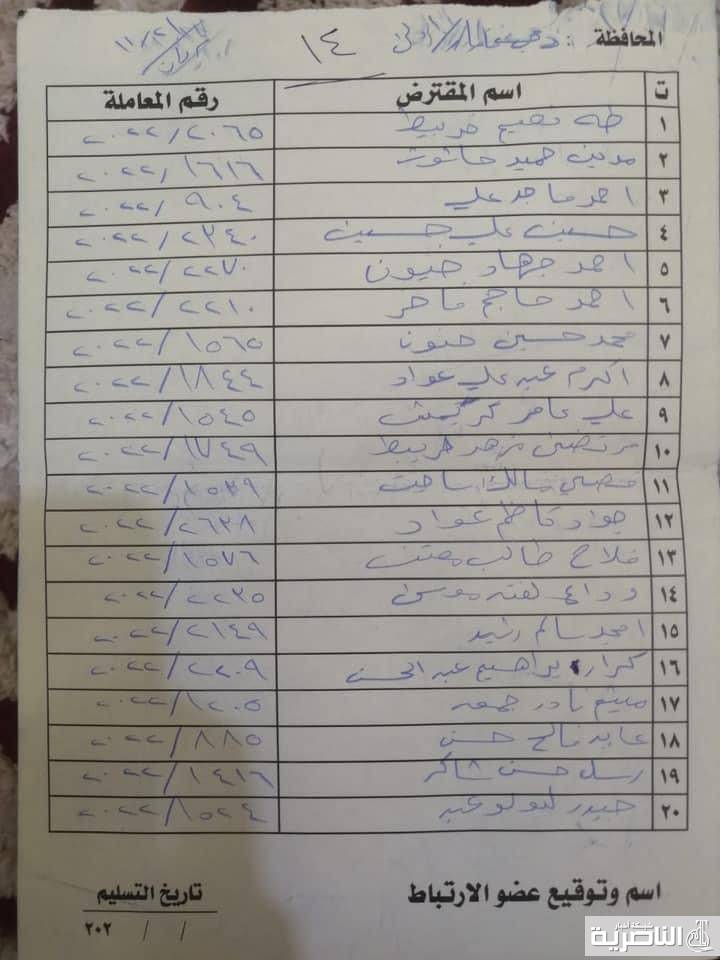 المحافظة :
١٤
ت اسم المقترض رقم المعاملة
١ طه فصيح خريبط ٢٠٢٢/٢٠٦٥
٢ مدين حميد ٢٠٢٢/١٦١٦
٣ احمد ماجد علي ٢٠٢٢/٩٠٤
٤ حسين علي حسين ٢٠٢٢/٢٣٤٠
٥ احمد جهاد ٢٠٢٢/٢٢٧٠
٦ احمد ٢٠٢٢/٢٢١٠
٧ محمد حسين حنون ٢٠٢٢/١٥٦٥
٨ اكرم عبد علي عواد ٢٠٢٢/١٨٤٤
٩ علي عامر ٢٠٢٢/١٥٤٥
١٠ مرتضى مزهر خريبط ٢٠٢٢/١٧٤٩
١١ مالك ساجت ٢٠٢٢/١٥٣٩
١٢ جواد كاظم عواد ٢٠٢٢/٢٦٣٨
١٣ فلاح طالب ٢٠٢٢/١٥٧٦
١٤ وداع لفته موسى ٢٠٢٢/٢٢٣٥
١٥ امجد سالم رشيد ٢٠٢٢/٢١٤٩
١٦ كرار ابراهيم عبد الحسن ٢٠٢٢/٢٢٠٩
١٧ ميثم نادر جمعه ٢٠٢٢/١٢٠٥
١٨ عايد فالح حسن ٢٠٢٢/٨٨٥
١٩ رسل حسن شاكر ٢٠٢٢/١٤١٦
٢٠ حيدر لولو عبد ٢٠٢٢/١٥٢٤
اسم وتوقيع عضو الارتباط تاريخ التسليم
/ / ٢٠٢
شبكة أخبار
الناصرية